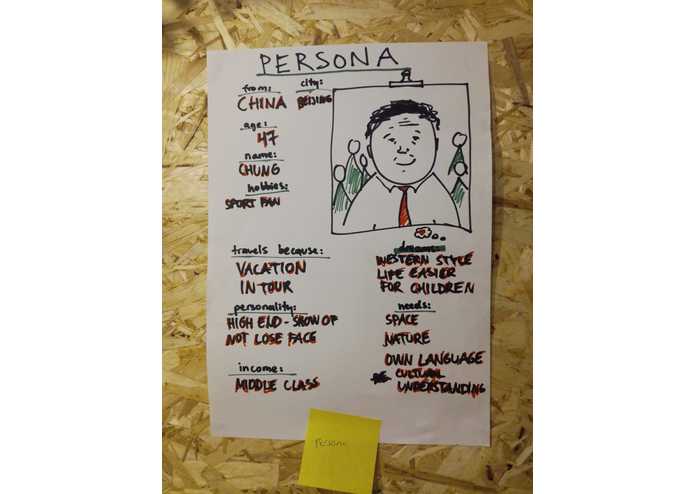 PERSONA
from:
CHINA
city:
BEIJING
age:
47
name:
CHUNG
hobbies:
SPORT FAN
travels because:
VACATION
IN TOUR
personality:
HIGH END - SHOW OF
NOT LOSE FACE
income:
MIDDLE CLASS
WESTERN STYLE
LIFE EASIER
FOR CHILDREN
needs:
SPACE
NATURE
OWN LANGUAGE
CULTURAL
UNDERSTANDING
Persona